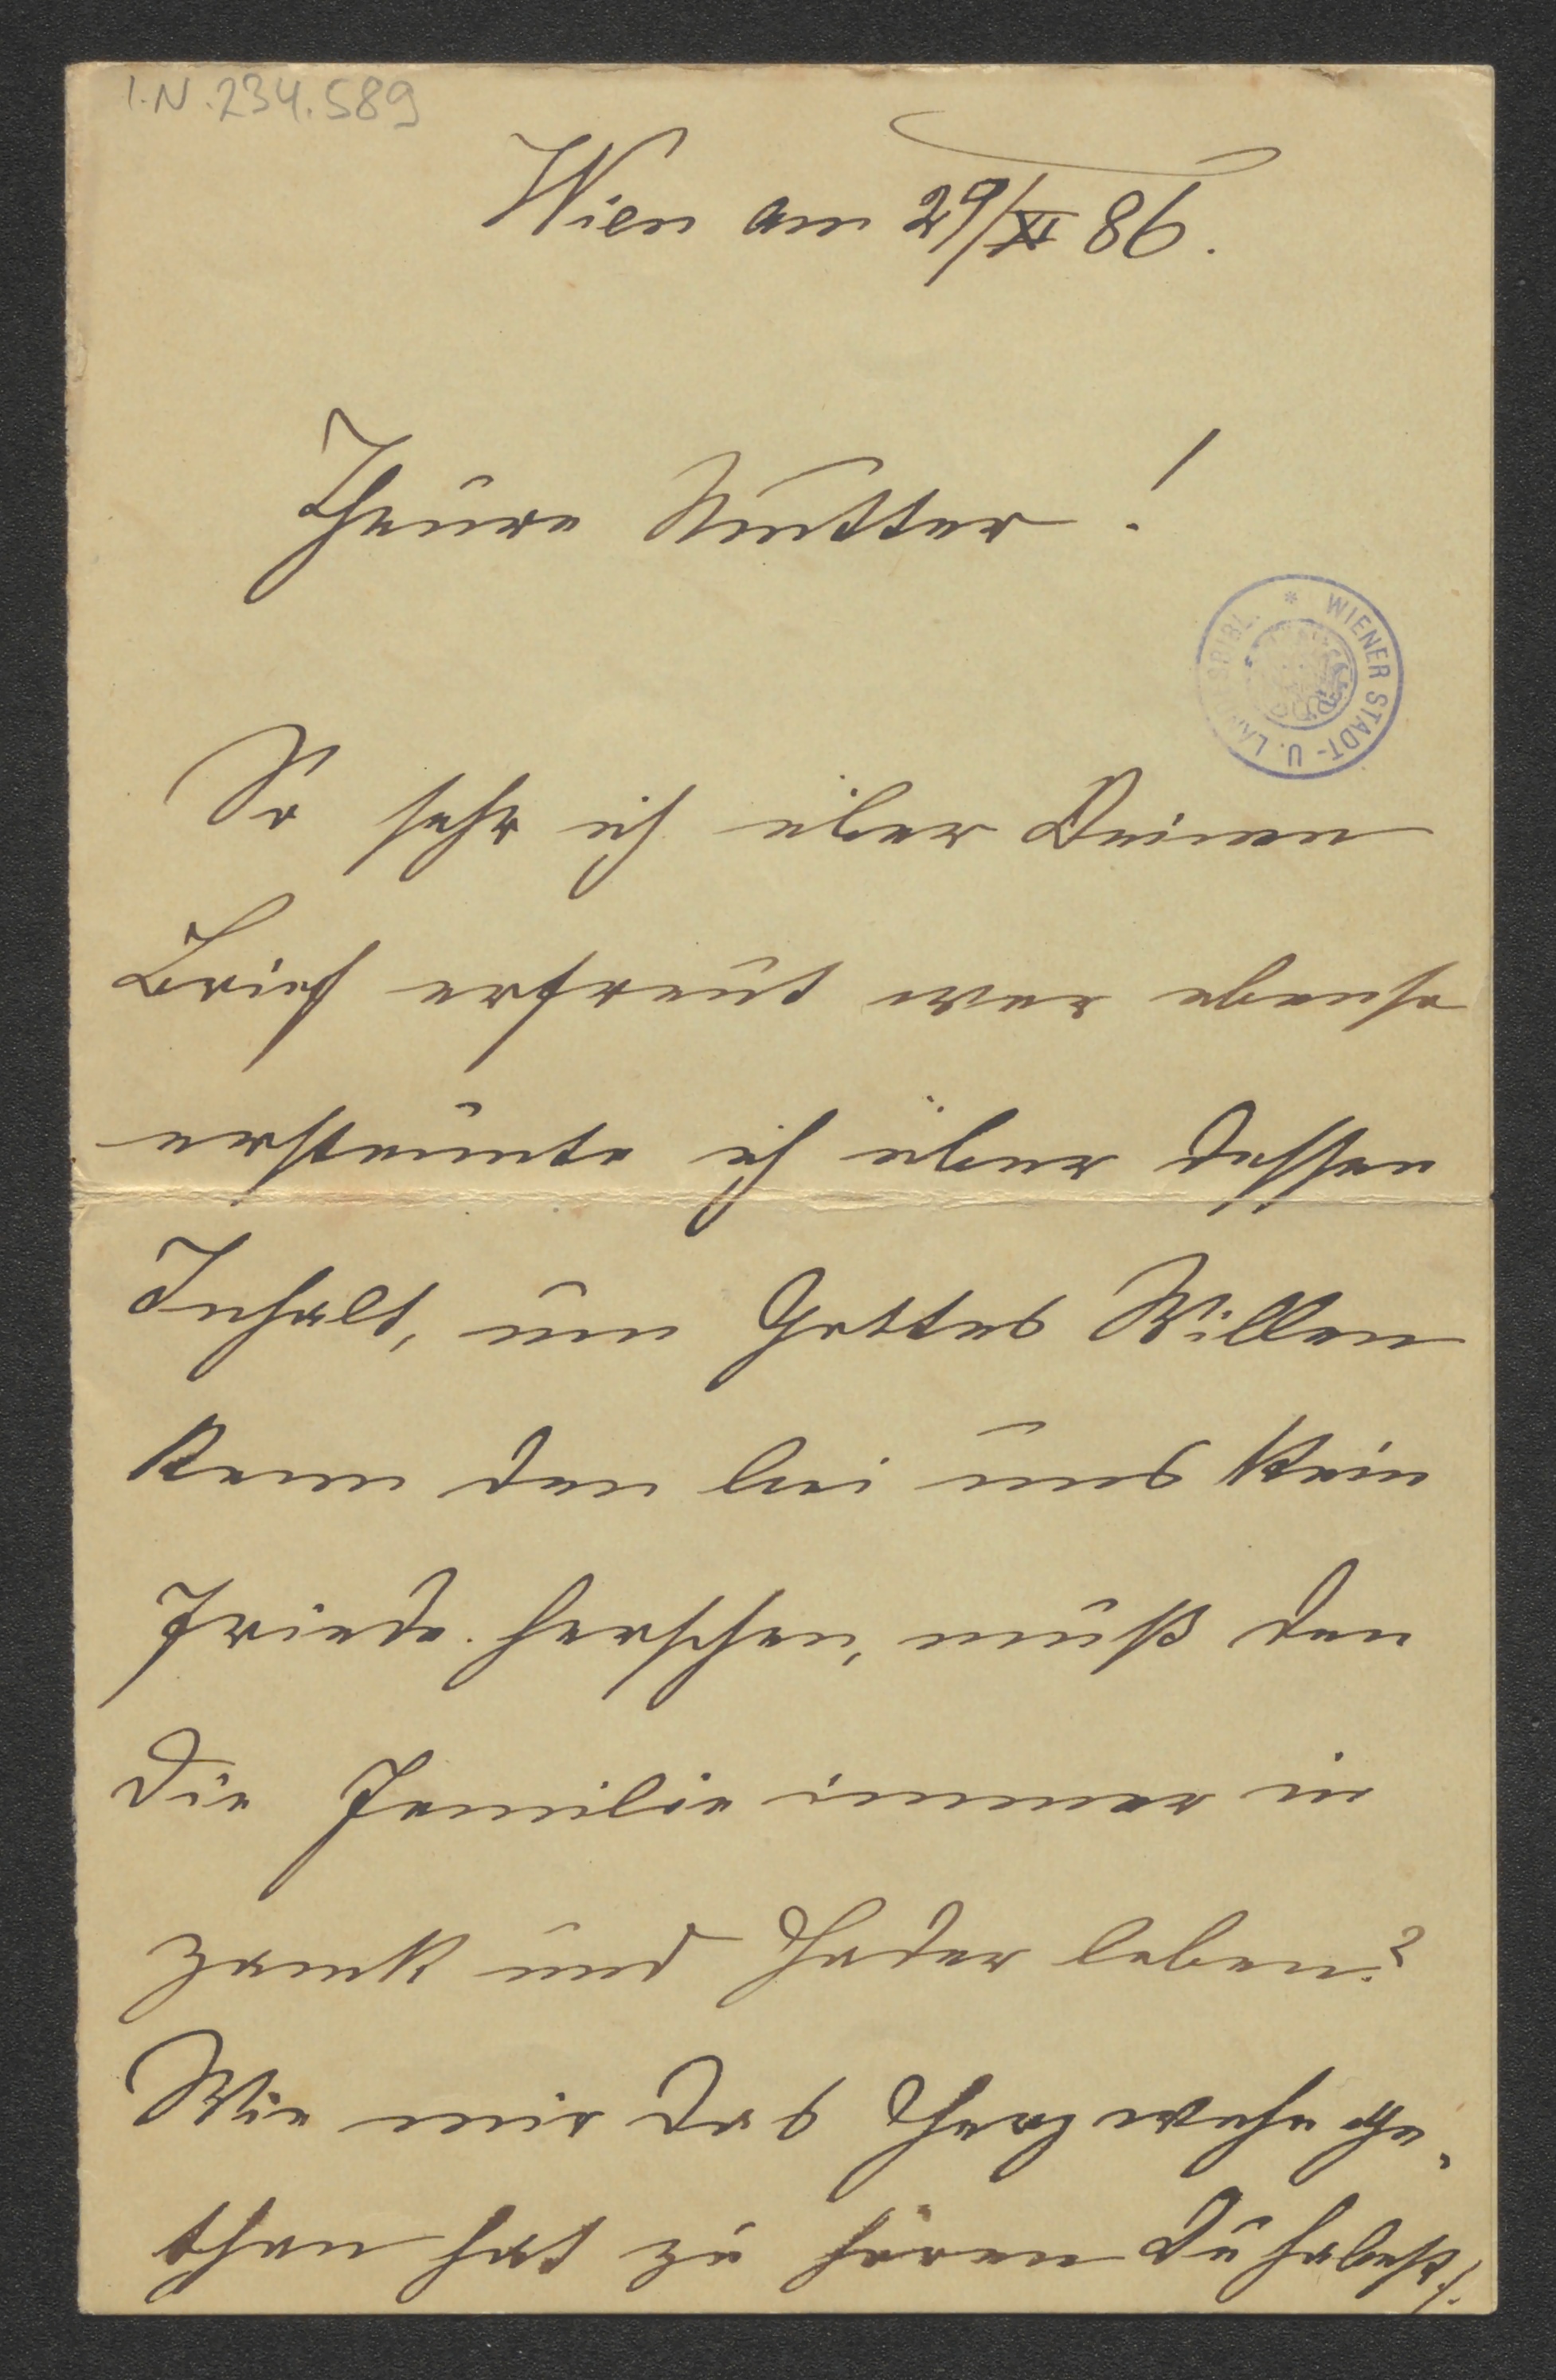 I.N.234.589
Wien am 29/XI 86.
Theure Mutter!
WIENER STADT- U. LANDESBIBL. *
So sehr ich über Deinen
Brief erfreut war ebenso
erstaunte ich über dessen
Inhalt, um Gottes Willen
kann den bei uns kein
Friede herschen, muß den
die Familie immer in
Zank und Hader leben?
Wie mir das Herz wehe ge-
than hat zu hören Du habest